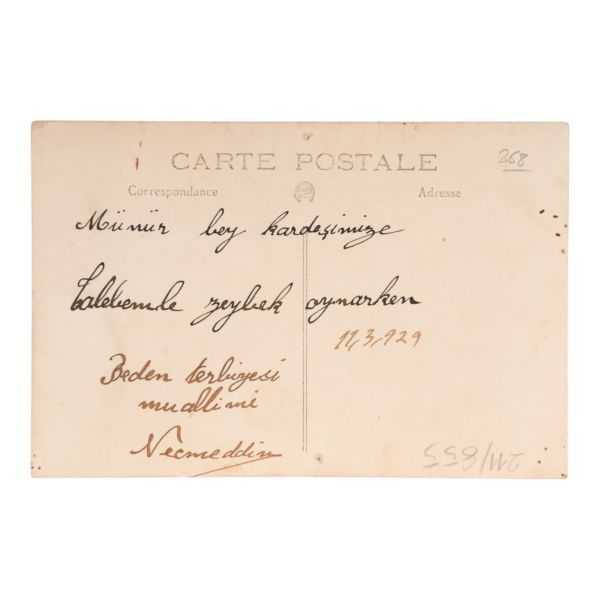 CARTE POSTALE
268
Correspondance
Adresse
Münür bey kardeşimize
Talebemle zeybek oynarken
11,3,929
Beden terbiyesi
muallimi
Necmeddin
211/855